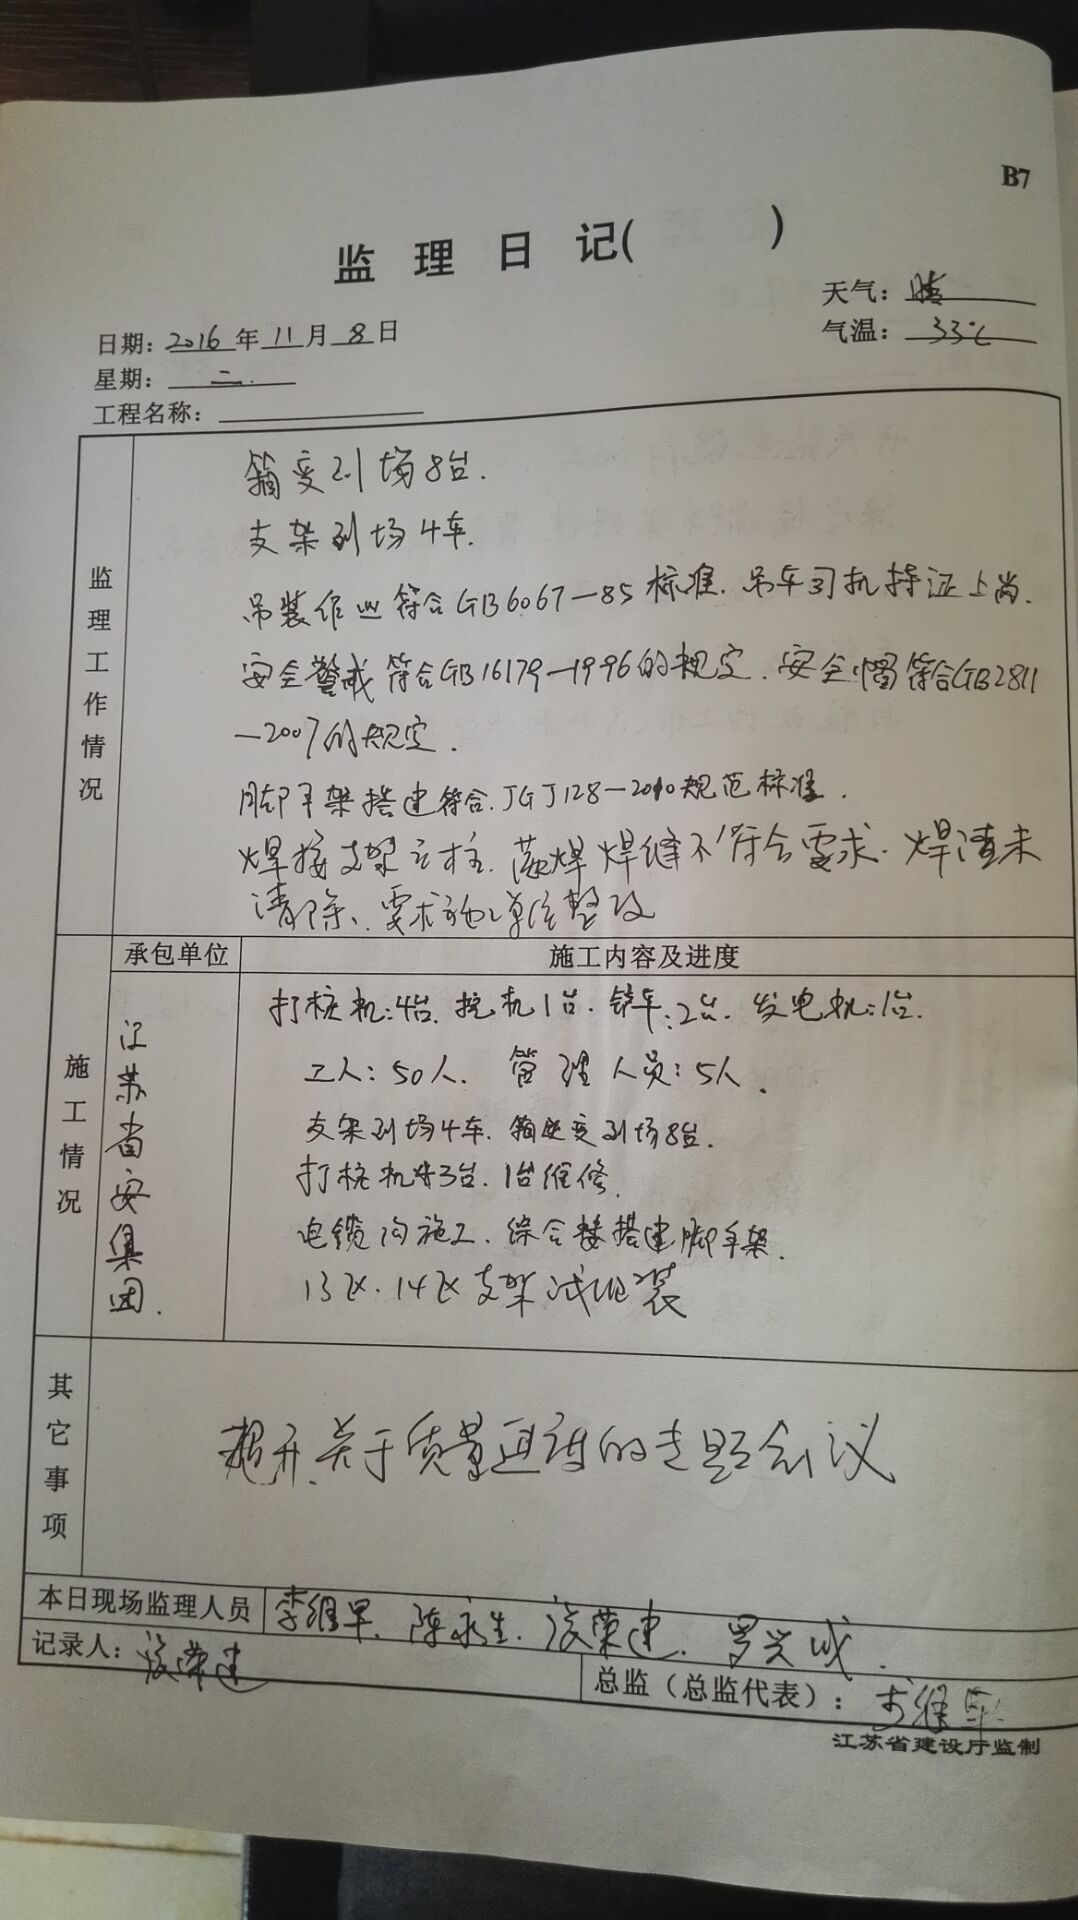 B7
监理日记( )
天气: 晴
日期: 2016年11月8日
气温: 33℃
星期: 二.
工程名称:
监理工作情况
箱变到场8台.
支架到场4车.
吊装作业符合GB6067-85标准. 吊车司机持证上岗.
安全警戒符合GB16179-1996的规定. 安全帽符合GB2811
-2007的规定.
脚手架搭建符合.JGJ128-2010规范标准.
焊接支架立柱. 焊缝不符合要求. 焊渣未
清除、要求施工单位整改
承包单位
施工内容及进度
施工情况
江苏省安集团.
打桩机:4台. 挖机1台. 铲车:2台. 发电机:1台.
工人: 50人. 管理人员: 5人.
支架到场4车. 箱变到场8台.
打桩机3台. 1台维修.
电缆沟施工. 综合楼搭建脚手架.
13区. 14区支架试组装
其它事项
召开关于质量进度的专题会议
本日现场监理人员
李继军. 陈永生. 荣建. 罗兴成.
记录人: 荣建
总监（总监代表）: 李继军
江苏省建设厅监制